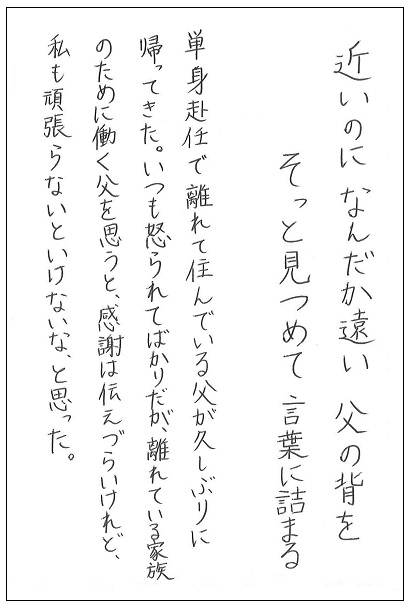 近いのに なんだか遠い 父の背を
そっと見つめて 言葉に詰まる
単身赴任で離れて住んでいる父が久しぶりに
帰ってきた。いつも怒られてばかりだが、離れている家族
のために働く父を思うと、感謝は伝えづらいけれど、
私も頑張らないといけないな、と思った。